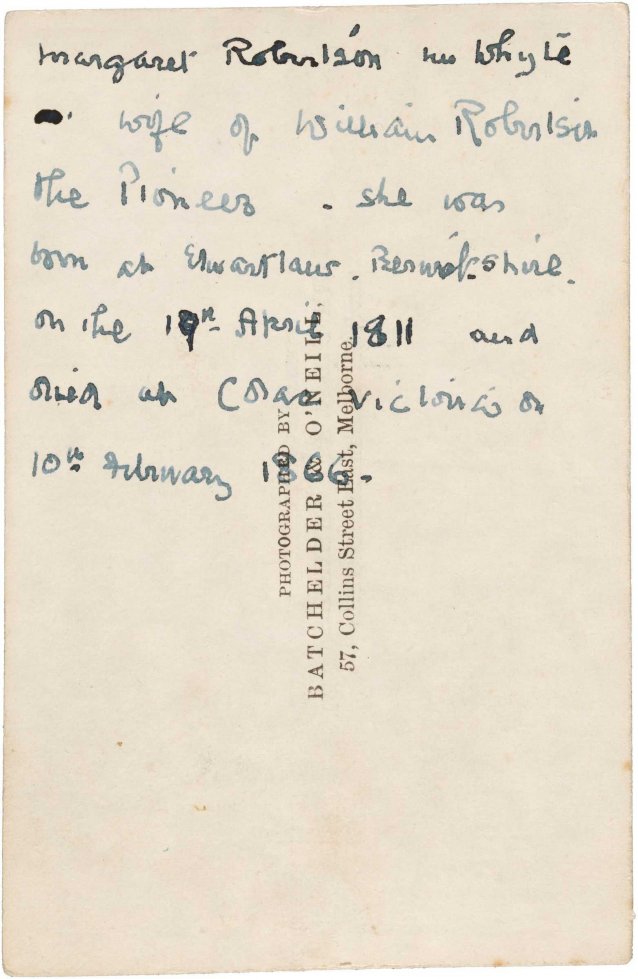 Margaret Robertson née Whyte
wife of William Robertson
the Pioneer . she was
born at . Berwickshire.
on the 19th April 1811 and
died at Colac Victoria on
10th February 1866.
PHOTOGRAPHED BY
BATCHELDER & O'NEILL,
57, Collins Street East, Melborne.